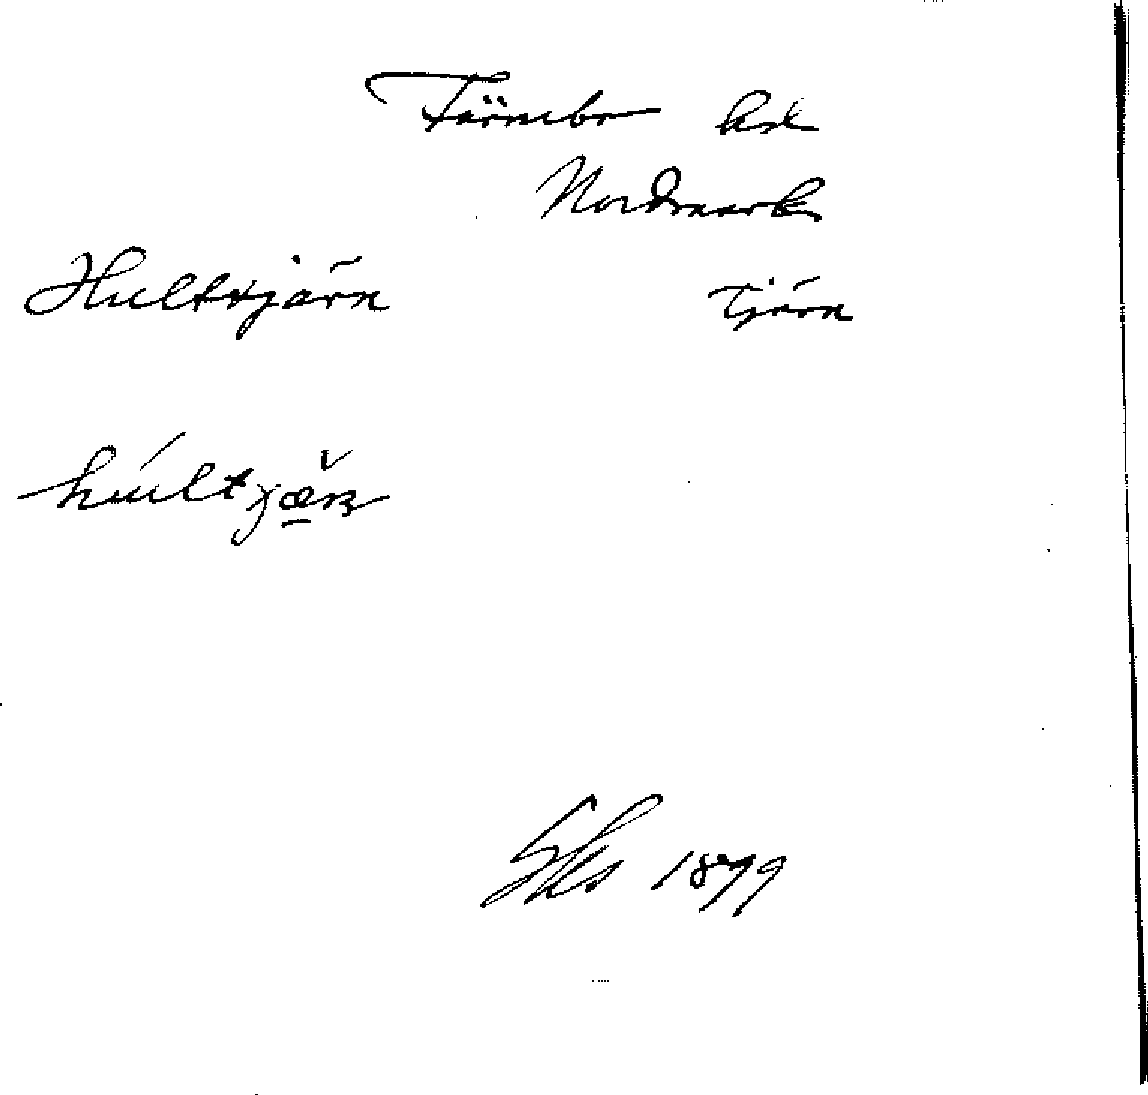 Färnebo hd
Nordmark
Hulttjärn tjärn
hultjæn
Sks 1879